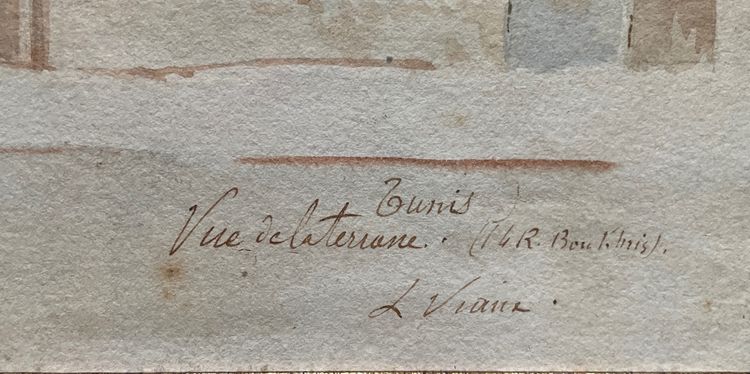 Tunis
Vue de la terrasse. (14 R. Bou Khris).
L Viaux